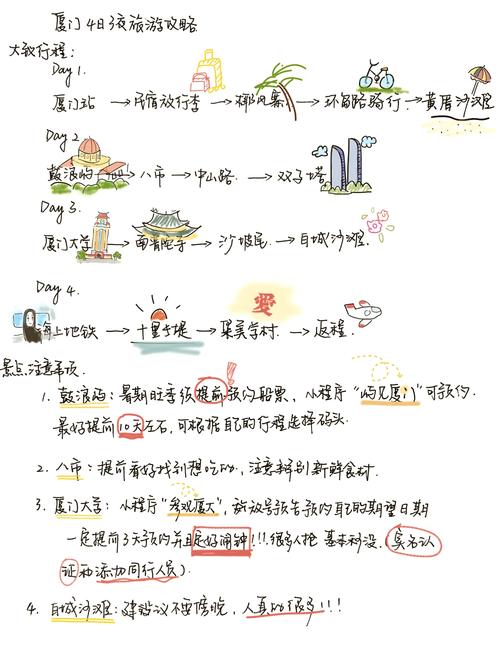 厦门4日3夜旅游攻略
大致行程：
Day 1.
厦门站 → 民宿放行李 → 椰风寨 → 环岛路骑行 → 黄厝沙滩
Day 2
鼓浪屿 → 八市 → 中山路 → 双子塔
Day 3.
厦门大学 → 南普陀寺 → 沙坡尾 → 白城沙滩.
Day 4.
海上地铁 → 十里长堤 → 集美学村 → 返程.
愛
景点注意事项.
1. 鼓浪屿：暑期旺季须提前预约船票，小程序“屿见厦门”可预约.
最好提前10天左右，可根据自己的行程选择码头.
2. 八市：提前看好找到想吃的，注意辨别新鲜食材.
3. 厦门大学：小程序“参观厦大”，放号预告预约自己的期望日期
一定提前3天预约并且定好闹钟!!!很多人抢 基本秒没.（实名认
证和添加同行人员）.
4. 白城沙滩：建议不要傍晚，人真的很多!!!